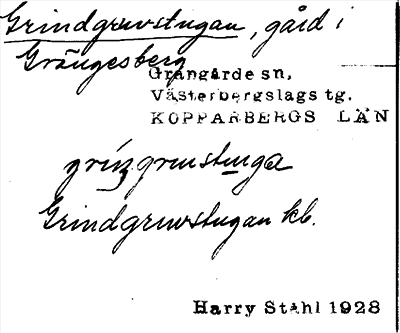 Grindgruvstugan, gård i
Grängesberg
Grangärde sn.
Västerbergslags tg.
KOPPARBERGS LÄN
Grindgruvstugan kb.
Harry Ståhl 1928